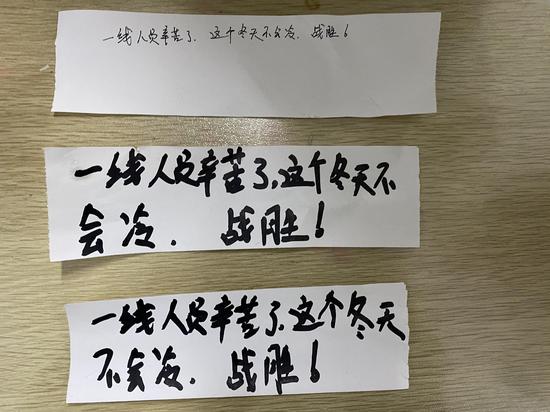 一线人员辛苦了，这个冬天不会冷，战胜！
一线人员辛苦了，这个冬天不
会冷，战胜！
一线人员辛苦了，这个冬天
不会冷，战胜！